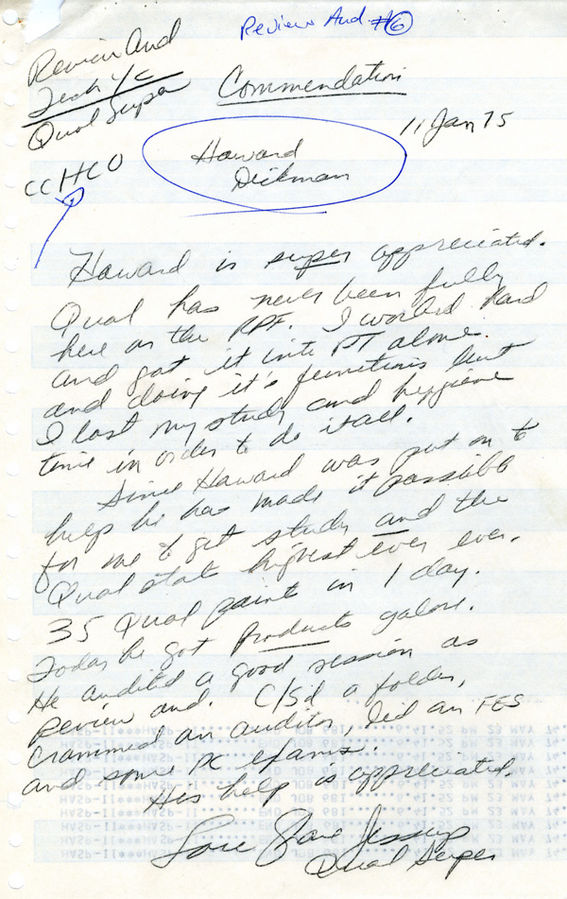 Review Aud #6
Review And
Tech i/c
Qual Super
Commendation
11 Jan 75
cc HCO
Howard
Dickman
Howard is super appreciated.
Qual has never been fully
here on the RPF. I worked hard
and got it into PT alone
and doing it's functions but
I lost my study and hygiene
time in order to do it all.
Since Howard was put on to
help he has made it possible
for me to get study and the
Qual stats highest ever ever.
35 Qual points in 1 day.
Today he got products galore.
He audited a good session as
Review aud. C/Sd a folder,
Crammed an auditor, did an FES
and some pc exams.
His help is appreciated.
Jessup
Qual Super